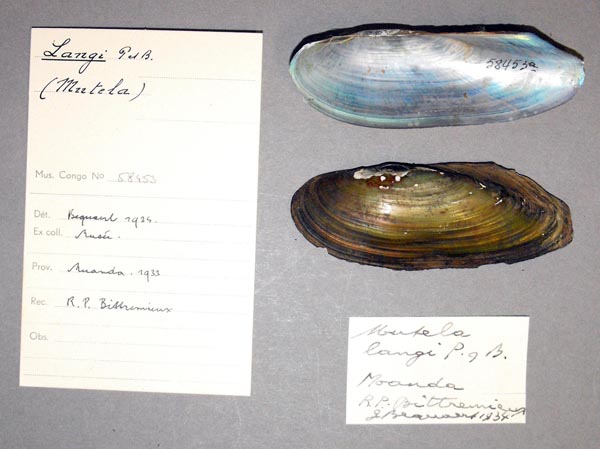 Langi P et B.
(Mutela)
Mus. Congo No 58453
Dét. Bequaert 1934.
Ex coll. Musée.
Prov. Muanda. 1933
Rec. R. P. Bittremieux
Obs.
58453a
Mutela
langi P. & B.
Moanda
R.P. Bittremieux
J. Bequaert 1934